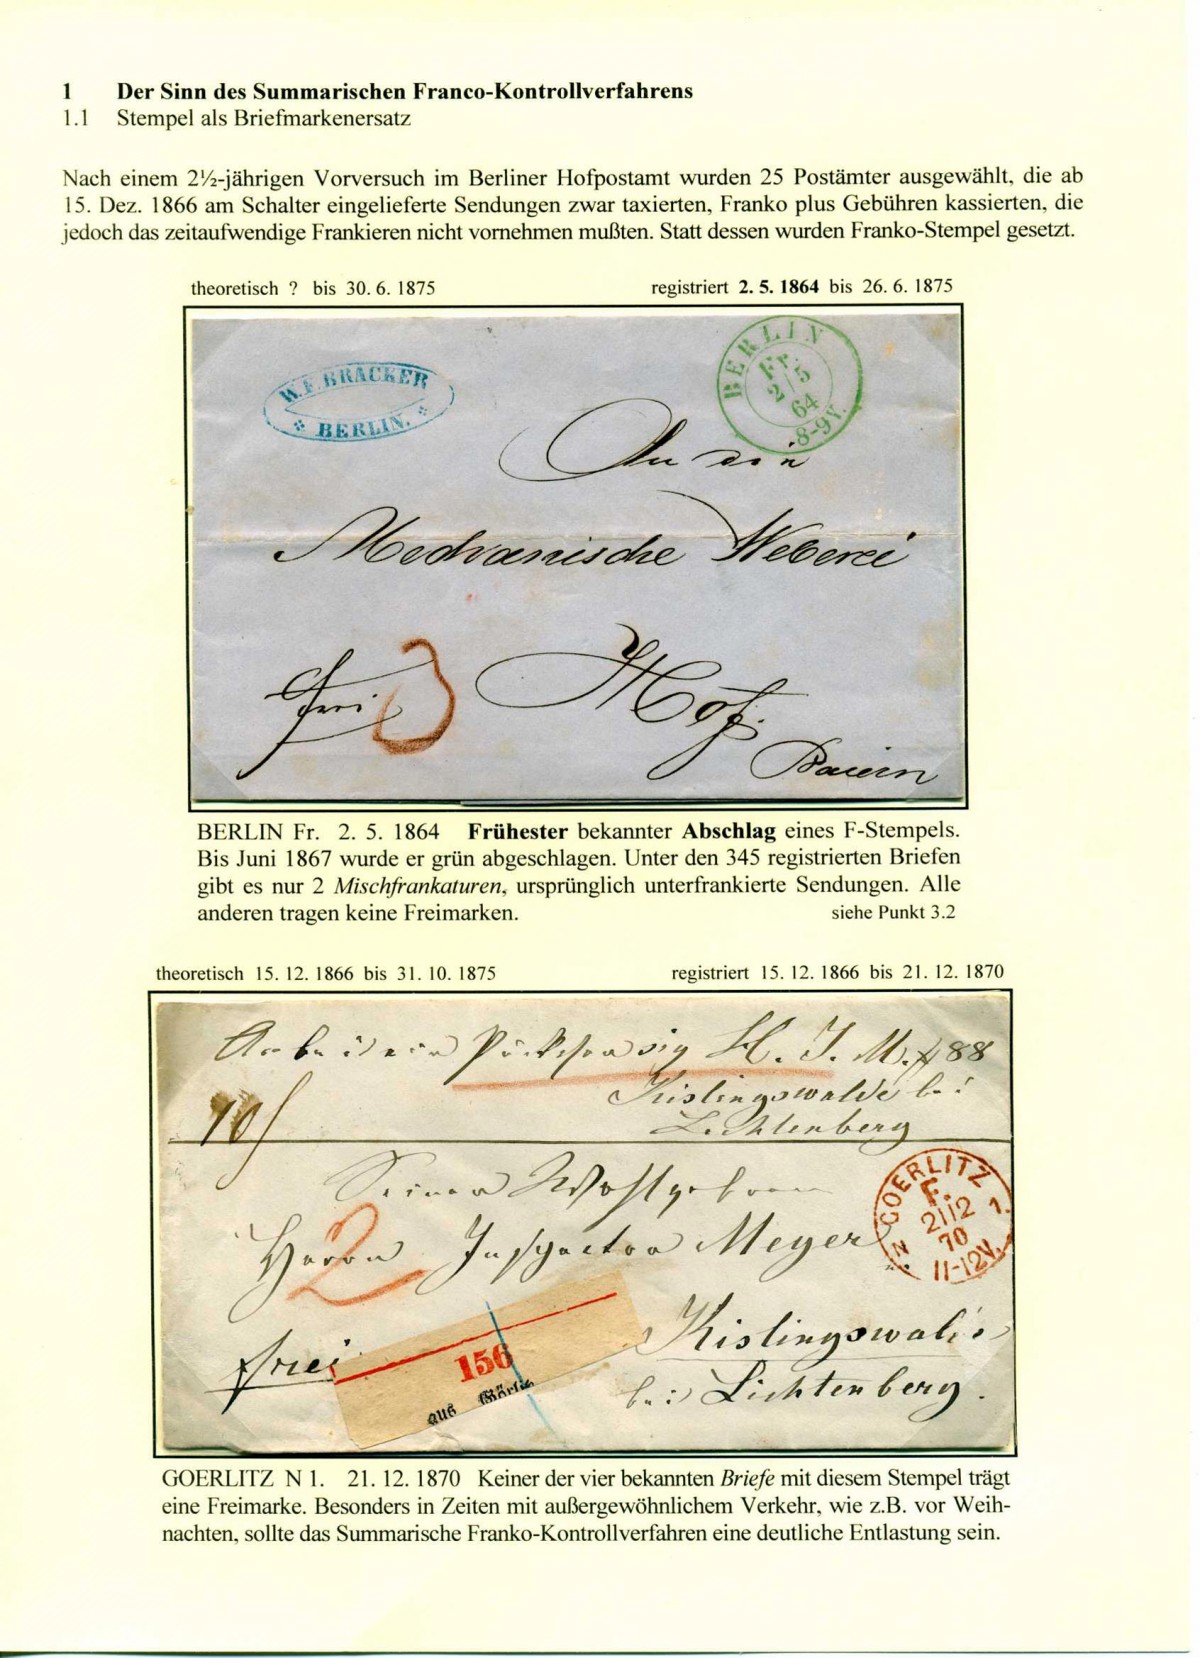 1 Der Sinn des Summarischen Franco-Kontrollverfahrens
1.1 Stempel als Briefmarkenersatz
Nach einem 2½-jährigen Vorversuch im Berliner Hofpostamt wurden 25 Postämter ausgewählt, die ab
15. Dez. 1866 am Schalter eingelieferte Sendungen zwar taxierten, Franko plus Gebühren kassierten, die
jedoch das zeitaufwendige Frankieren nicht vornehmen mußten. Statt dessen wurden Franko-Stempel gesetzt.
theoretisch ? bis 30. 6. 1875 registriert 2. 5. 1864 bis 26. 6. 1875
W. F. BRACKER
BERLIN.
BERLIN
Fr.
2/5
64
8-9V.
An die
Mechanische Weberei
frei 3 Hof
Baiern
BERLIN Fr. 2. 5. 1864 Frühester bekannter Abschlag eines F-Stempels.
Bis Juni 1867 wurde er grün abgeschlagen. Unter den 345 registrierten Briefen
gibt es nur 2 Mischfrankaturen, ursprünglich unterfrankierte Sendungen. Alle
anderen tragen keine Freimarken. siehe Punkt 3.2
theoretisch 15. 12. 1866 bis 31. 10. 1875 registriert 15. 12. 1866 bis 21. 12. 1870
H. J. M. # 88
Kislingswalde bei
Lichtenberg
10
GOERLITZ
F.
21 12
70
11-12V.
N 1.
Seiner Wohlgeboren
Herrn Inspector Meyer
2
frei
156
aus Görlitz
Kislingswalde
bei Lichtenberg.
GOERLITZ N 1. 21. 12. 1870 Keiner der vier bekannten Briefe mit diesem Stempel trägt
eine Freimarke. Besonders in Zeiten mit außergewöhnlichem Verkehr, wie z.B. vor Weih-
nachten, sollte das Summarische Franko-Kontrollverfahren eine deutliche Entlastung sein.